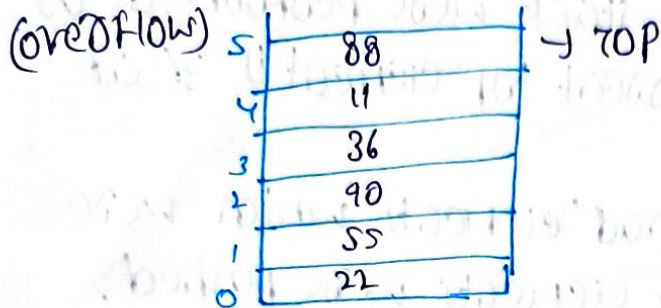 (overflow) 5 88 → TOP
4 11
3 36
2 90
1 55
0 22